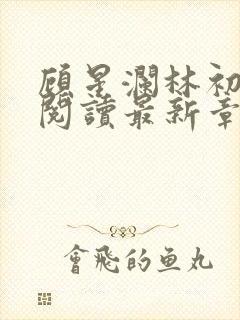 顾星澜林初
閱讀最新章
會飛的鱼丸